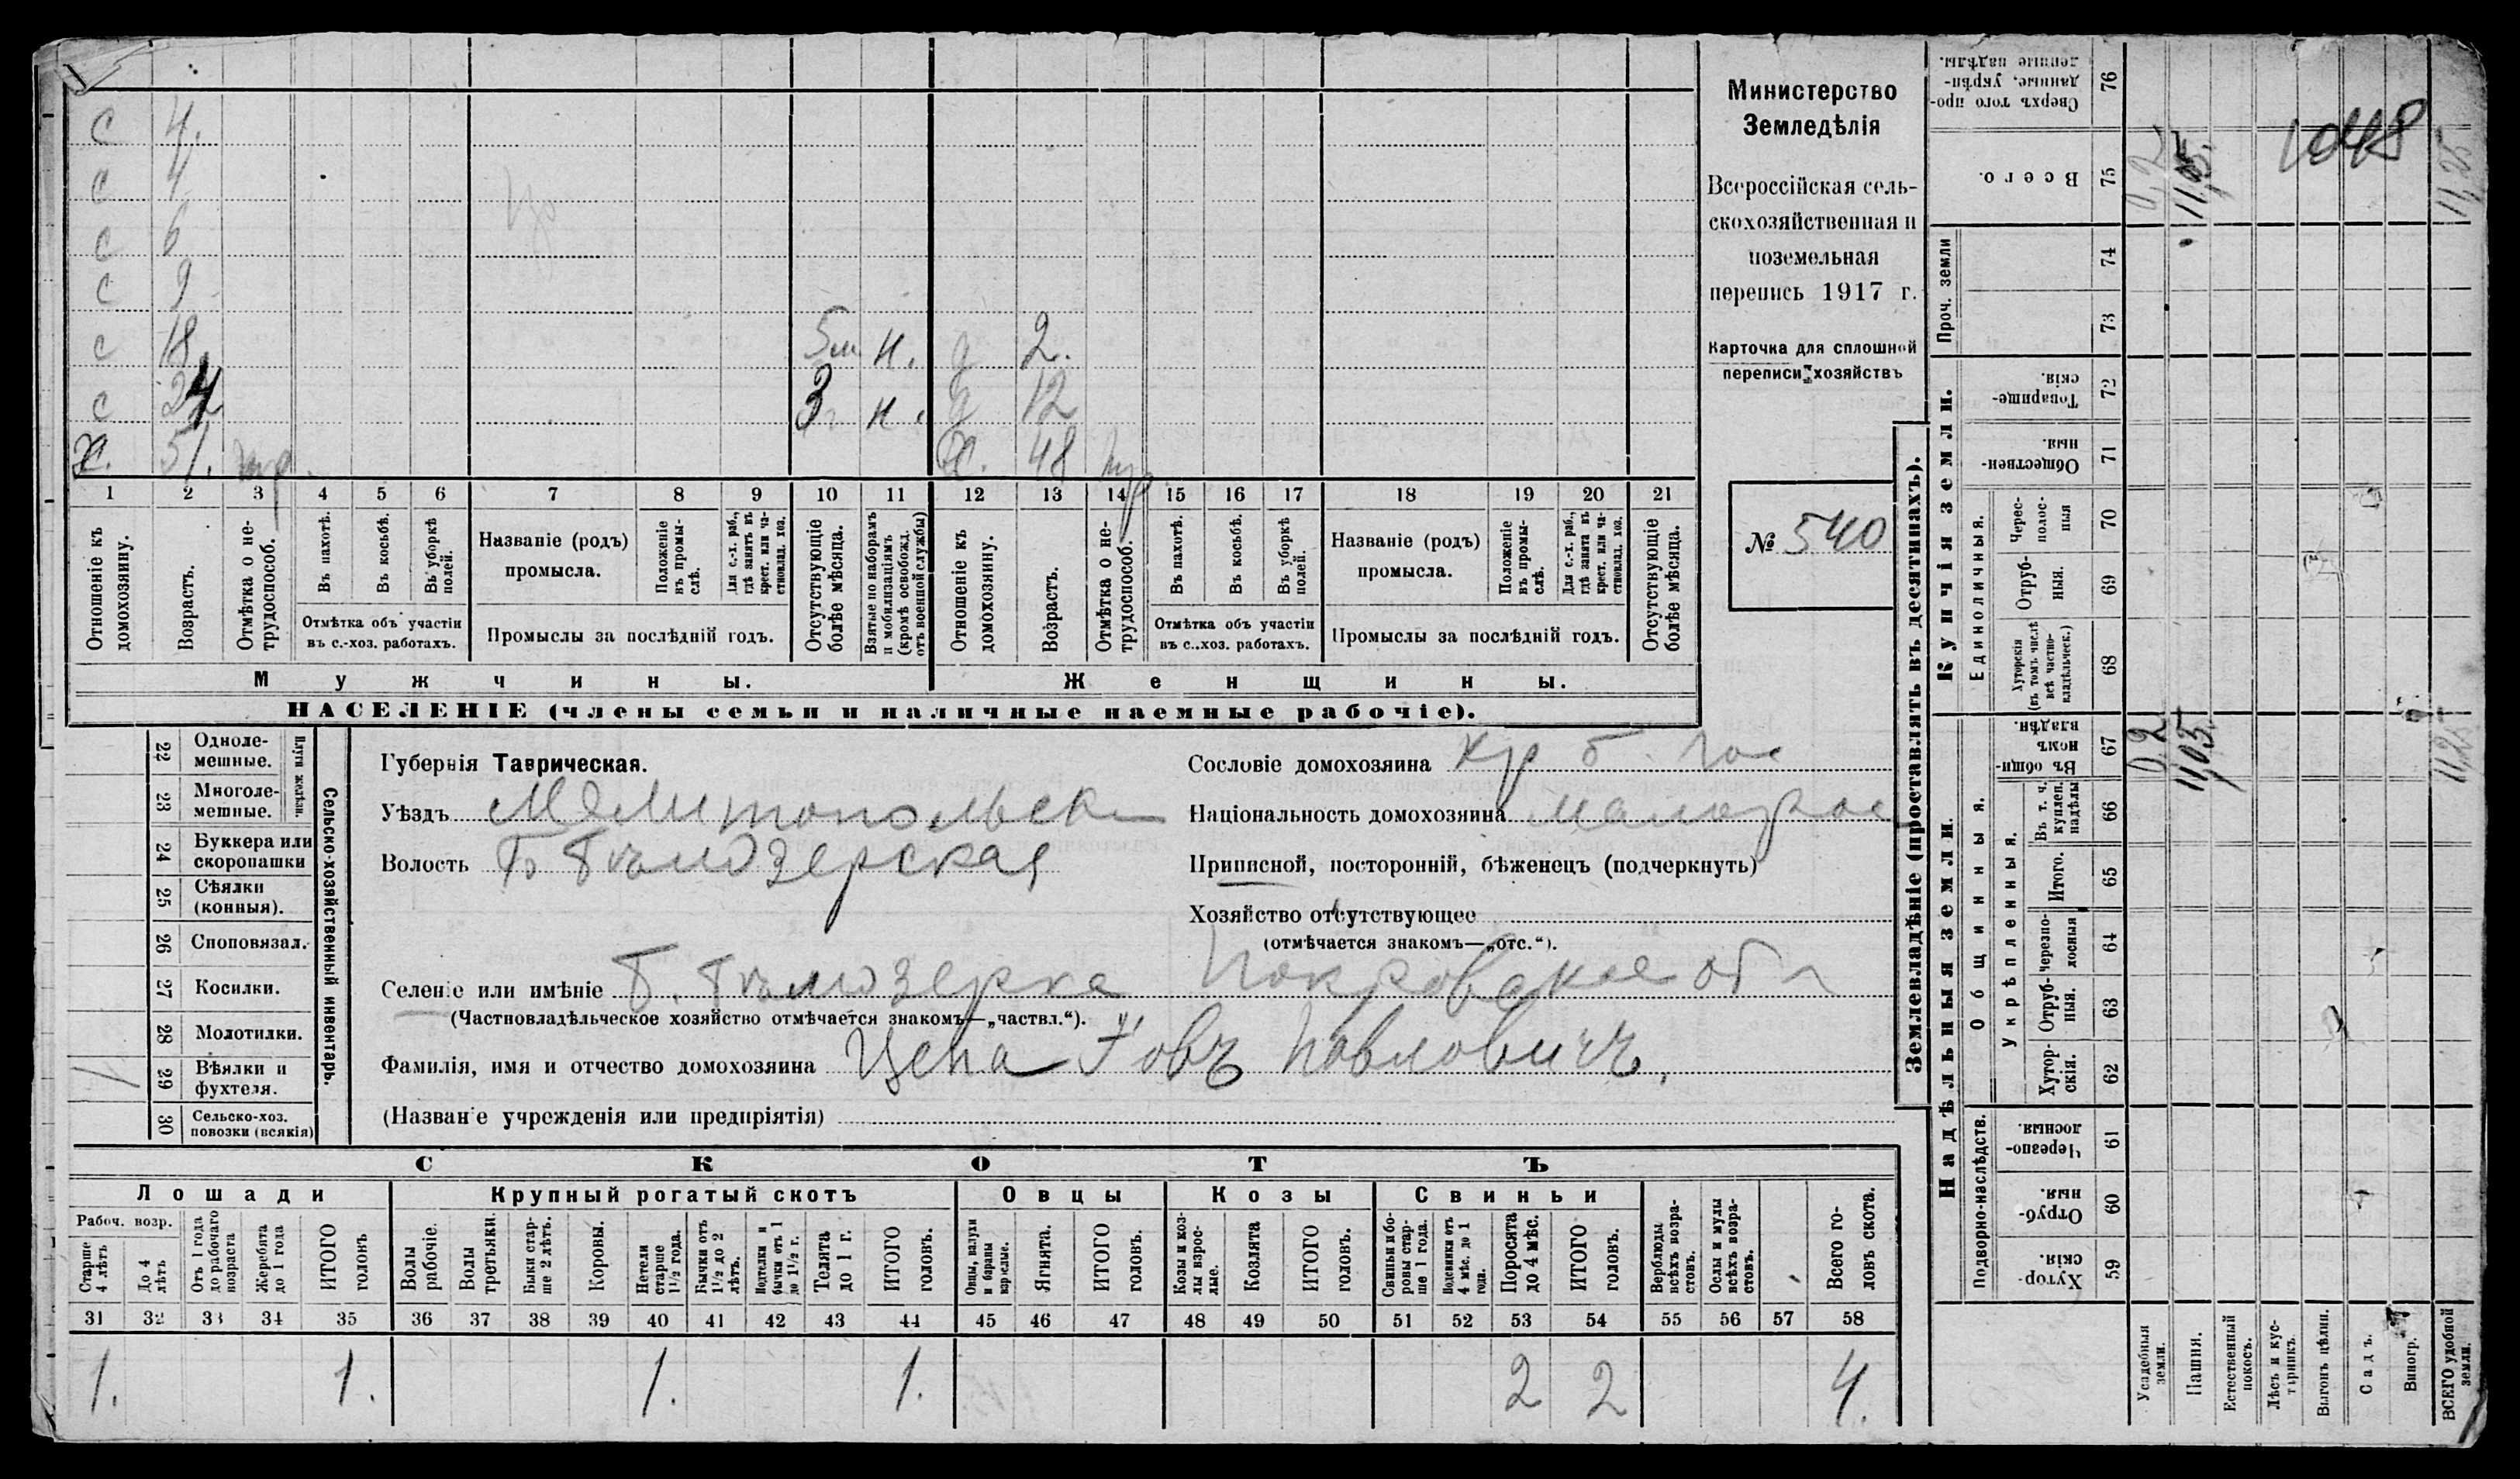 с 4.
с 4
с 6
с 9
с 18 5м н. д 2.
с 24 3г н. д 12
х. 51. х. 48
1 2 3 4 5 6 7 8 9 10 11 12 13 14 15 16 17 18 19 20 21
Отношеніе къ домохозяину.
Возрастъ.
Отмѣтка о нетрудоспособ.
Въ пахотѣ.
Въ косьбѣ.
Въ уборкѣ полей.
Отмѣтка объ участіи
въ с.-хоз. работахъ.
Названіе (родъ)
промысла.
Положеніе въ промыслѣ.
Для с.-х. раб., гдѣ занятъ въ крест. или частновлад. хоз.
Промыслы за послѣдній годъ.
Отсутствующіе болѣе мѣсяца.
Взятые по наборамъ и мобилизаціямъ (кромѣ освобожд. отъ военной службы)
Отношеніе къ домохозяину.
Возрастъ.
Отмѣтка о нетрудоспособ.
Въ пахотѣ.
Въ косьбѣ.
Въ уборкѣ полей.
Отмѣтка объ участіи
въ с..хоз. работахъ.
Названіе (родъ)
промысла.
Положеніе въ промыслѣ.
Для с.-х. раб., гдѣ занятъ въ крест. или частновлад. хоз.
Промыслы за послѣдній годъ.
Отсутствующіе болѣе мѣсяца.
Мужчины. Женщины.
НАСЕЛЕНІЕ (члены семьи и наличные наемные рабочіе).
Министерство
Земледѣлія
Всероссійская сель-
скохозяйственная и
поземельная
перепись 1917 г.
Карточка для сплошной
переписи хозяйствъ
№ 540
22 Однолемешные.
23 Многолемешные.
Плуги желѣзн.
24 Буккера или скоропашки
25 Сѣялки (конныя).
26 Споповязал.
27 Косилки.
28 Молотилки.
29 Вѣялки и фухтеля. 1
30 Сельско-хоз. повозки (всякія)
Сельско-хозяйственный инвентарь.
Губернія Таврическая.
Уѣздъ Мелитопольск
Волость Б Бѣлозерская
Сословіе домохозяина кр б. гос
Національность домохозяина малорос
Приписной, посторонній, бѣженецъ (подчеркнуть)
Хозяйство отсутствующее
(отмѣчается знакомъ—„отс.“).
Селеніе или имѣніе Б. Бѣлозерка Покровское об
(Частновладѣльческое хозяйство отмѣчается знакомъ—„частвл.“).
Фамилія, имя и отчество домохозяина Цепа Іовъ Павловичъ.
(Названіе учрежденія или предпріятія)
СКОТЪ
Лошади Крупный рогатый скотъ Овцы Козы Свиньи
Рабоч. возр.
Старше 4 лѣтъ
До 4 лѣтъ
Отъ 1 года до рабочаго возраста
Жеребята до 1 года
ИТОГО головъ
Волы рабочіе.
Волы третьяки.
Быки старше 2 лѣтъ.
Коровы.
Нетели старше 1½ года.
Бычки отъ 1½ до 2 лѣтъ.
бычки отъ 1 до 1½ г.
Телята до 1 г.
ИТОГО головъ.
Овцы, валухи и бараны взрослые.
Ягнята.
ИТОГО головъ.
Козы и козлы взрослые.
Козлята
ИТОГО головъ.
Свиньи и боровы старше 1 года.
Подсвинки отъ 4 мѣс. до 1 года.
Поросята до 4 мѣс.
ИТОГО головъ.
Верблюды всѣхъ возрастовъ.
Ослы и мулы всѣхъ возрастовъ.
Всего головъ скота.
31 32 33 34 35 36 37 38 39 40 41 42 43 44 45 46 47 48 49 50 51 52 53 54 55 56 57 58
1. 1. 1. 1. 2 2 4.
Землевладѣніе (проставлять въ десятинахъ).
Сверхъ того проданные, укрѣпленные надѣлы. 76
1048
Всего. 75 0,2 11,05. 11,25
Проч. земли 74 73
Купчія земли.
Товарищескія. 72
Общественныя. 71
Единоличныя.
Чересполосныя 70
Отрубныя. 69
Хуторскія (въ томъ числѣ всѣ частновладѣльческ.) 68
Надѣльныя земли
Общинныя.
Въ общиномъ владѣн. 67 0,2 11,05. 11,25
Укрѣпленныя.
Въ т. ч. куплен. надѣлы 66
Итого. 65
Черезполосныя 64
Отрубныя. 63
Хуторскія. 62
Подворно-наслѣдств.
Черезполосныя. 61
Отрубныя. 60
Хуторскія 59
Усадебныя земли.
Пашня.
Естественный покосъ.
Лѣсъ и кустарникъ.
Выгонъ цѣлин.
Садъ.
Виногр.
ВСЕГО удобной земли.